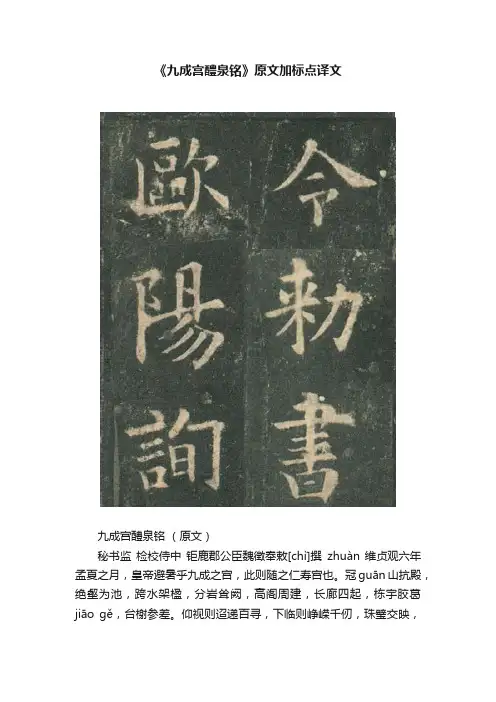 《九成宫醴泉铭》原文加标点译文
令勅書
歐陽詢
九成宫醴泉铭 （原文）
秘书监 检校侍中 钜鹿郡公臣魏徵奉敕[chì]撰 zhuàn 维贞观六年
孟夏之月，皇帝避暑乎九成之宫，此则随之仁寿宫也。冠guān山抗殿，
绝壑为池，跨水架楹，分岩耸阙，高阁周建，长廊四起，栋宇胶葛
jiāo gě，台榭参差。仰视则迢递百寻，下临则峥嵘千仞，珠璧交映，